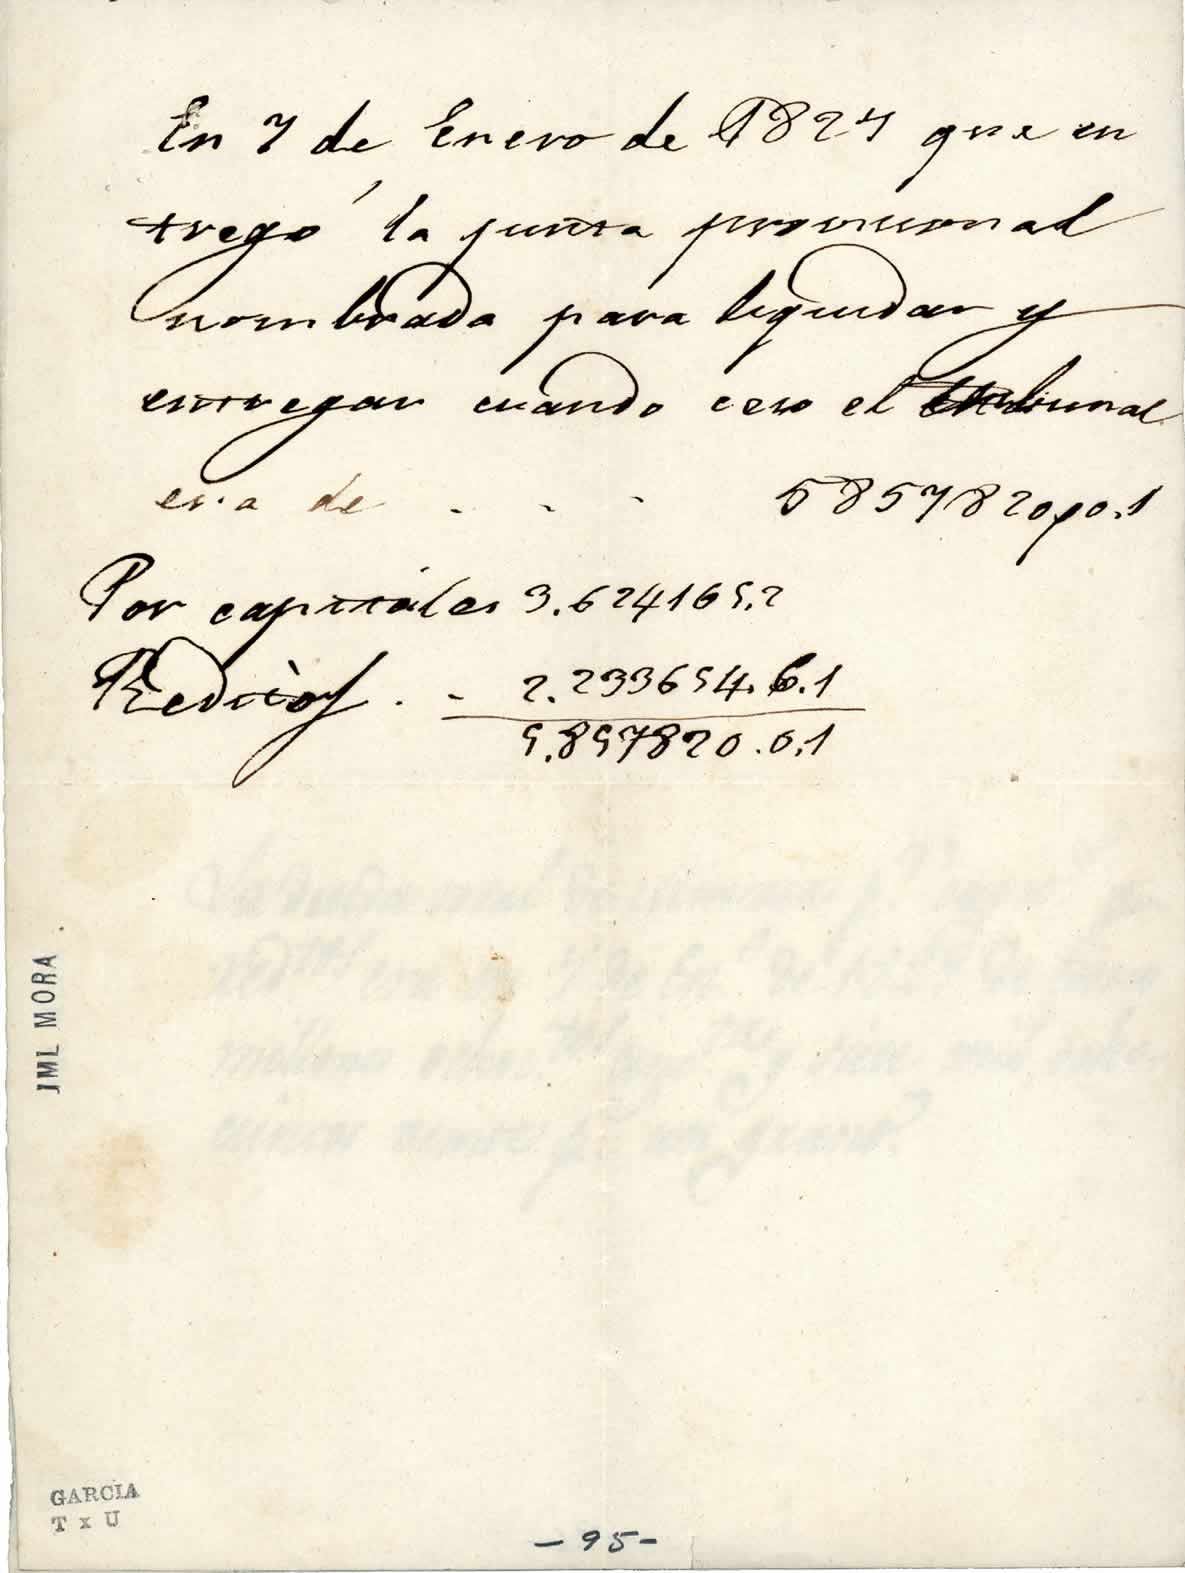 En 7 de Enero de 1827 que en
tregó la junta provicional
nombrada para liquidar y
entregar cuando ceso el tribunal
era de . . . 5857820p0.1
Por capitales 3.624165.2
Reditos . - 2.233654.6.1
5.857820.0.1
JML MORA
GARCIA
T x U
- 95 -